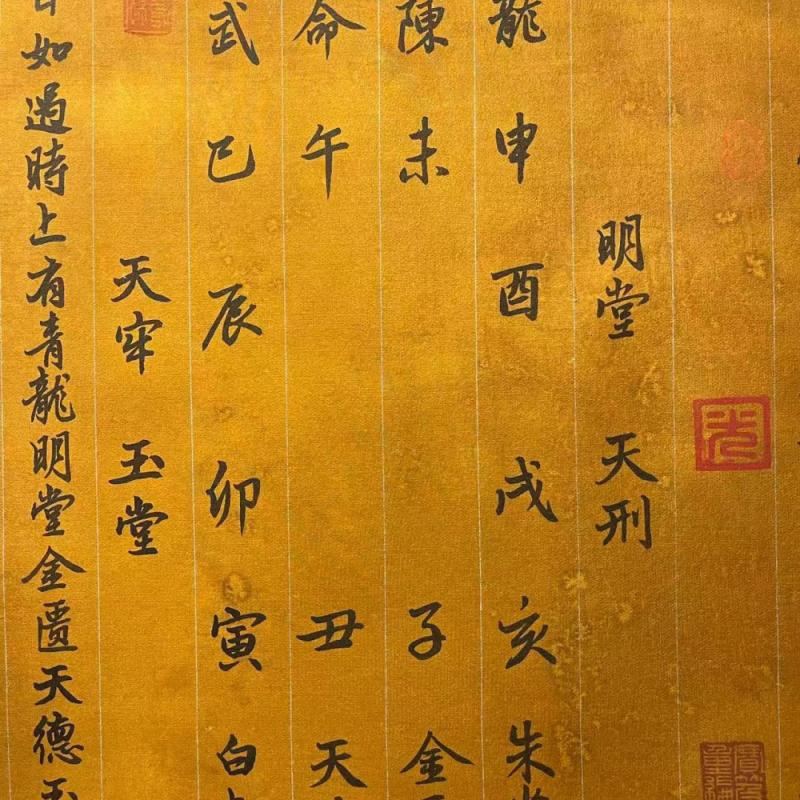 明堂 天刑
龍 申 酉 戌 亥 朱
陳 未 子 金
命 午 丑 天
武 巳 辰 卯 寅 白
天牢 玉堂
如遇時上有青龍明堂金匱天德玉